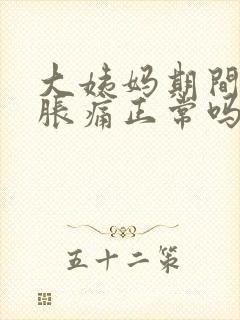 大姨妈期间
胀痛正常吗
五十二策